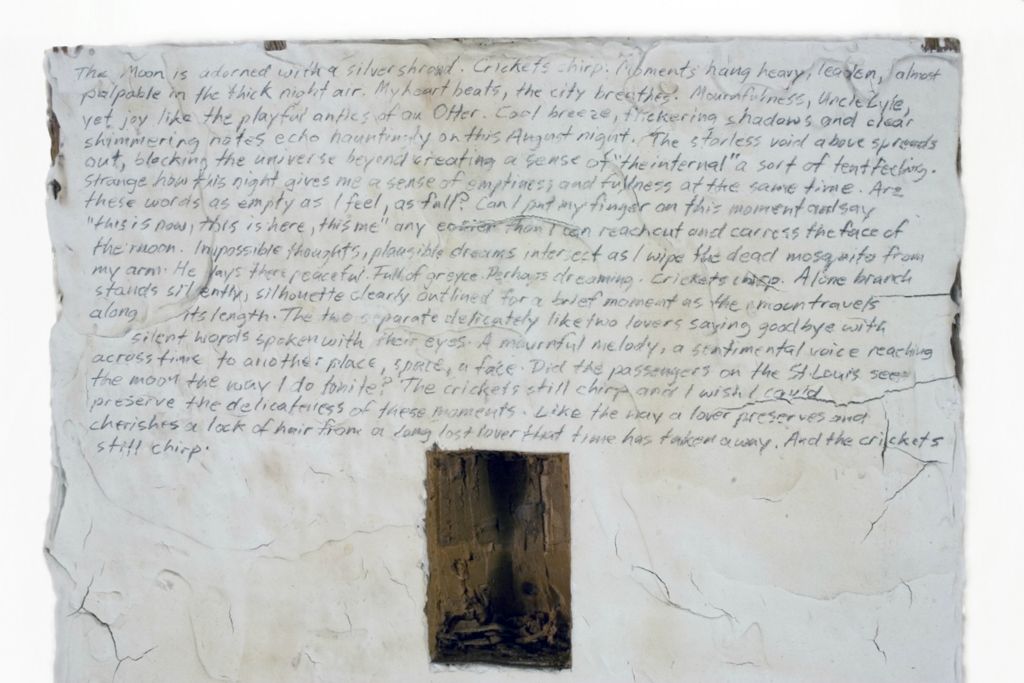 The Moon is adorned with a silver shroud. Crickets chirp. Moments hang heavy, leaden, almost
palpable in the thick night air. My heart beats, the city breathes. Mournfulness, Uncle Lyle,
yet joy like the playful antics of an Otter. Cool breeze, flickering shadows and clear
shimmering notes echo hauntingly on this August night. The starless void above spreads
out, blocking the universe beyond creating a sense of "the internal" a sort of tent feeling.
strange how this night gives me a sense of emptiness and fullness at the same time. Are
these words as empty as I feel, as full? Can I put my finger on this moment and say
"this is now, this is here, this me" any easier than I can reach out and carress the face of
the moon. Impossible thoughts, plausible dreams intersect as I wipe the dead mosquito from
my arm. He lays there peaceful. Full of Perhaps dreaming. Crickets chirp. A lone branch
stands silently, silhouette clearly outlined for a brief moment as the moon travels
along its length. The two separate delicately like two lovers saying goodbye with
silent words spoken with their eyes. A mournful melody, a sentimental voice reaching
across time to another place, space, a face. Did the passengers on the St. Louis see
the moon the way I do tonite? The crickets still chirp and I wish I could
preserve the delicateness of these moments. Like the way a lover preserves and
cherishes a lock of hair from a long lost lover that time has taken away. And the crickets
still chirp.